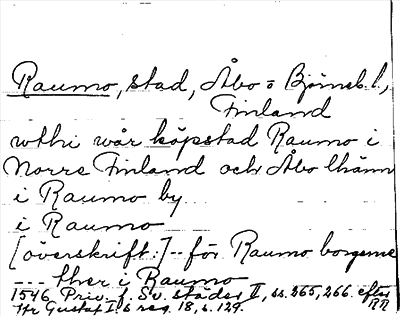 Raumo, stad, Åbo o Björneb. l.,
Finland
wthi wår köpstad Raumo i
Norre Finland och Åbo lhänn
i Raumo by
i Raumo
[överskrift:] -- för Raumo borgerne
--- ther i Raumo
1546 Priv. f. Sv. städer II, ss. 265, 266. efter
Gustaf I:s reg. 18, s. 129.